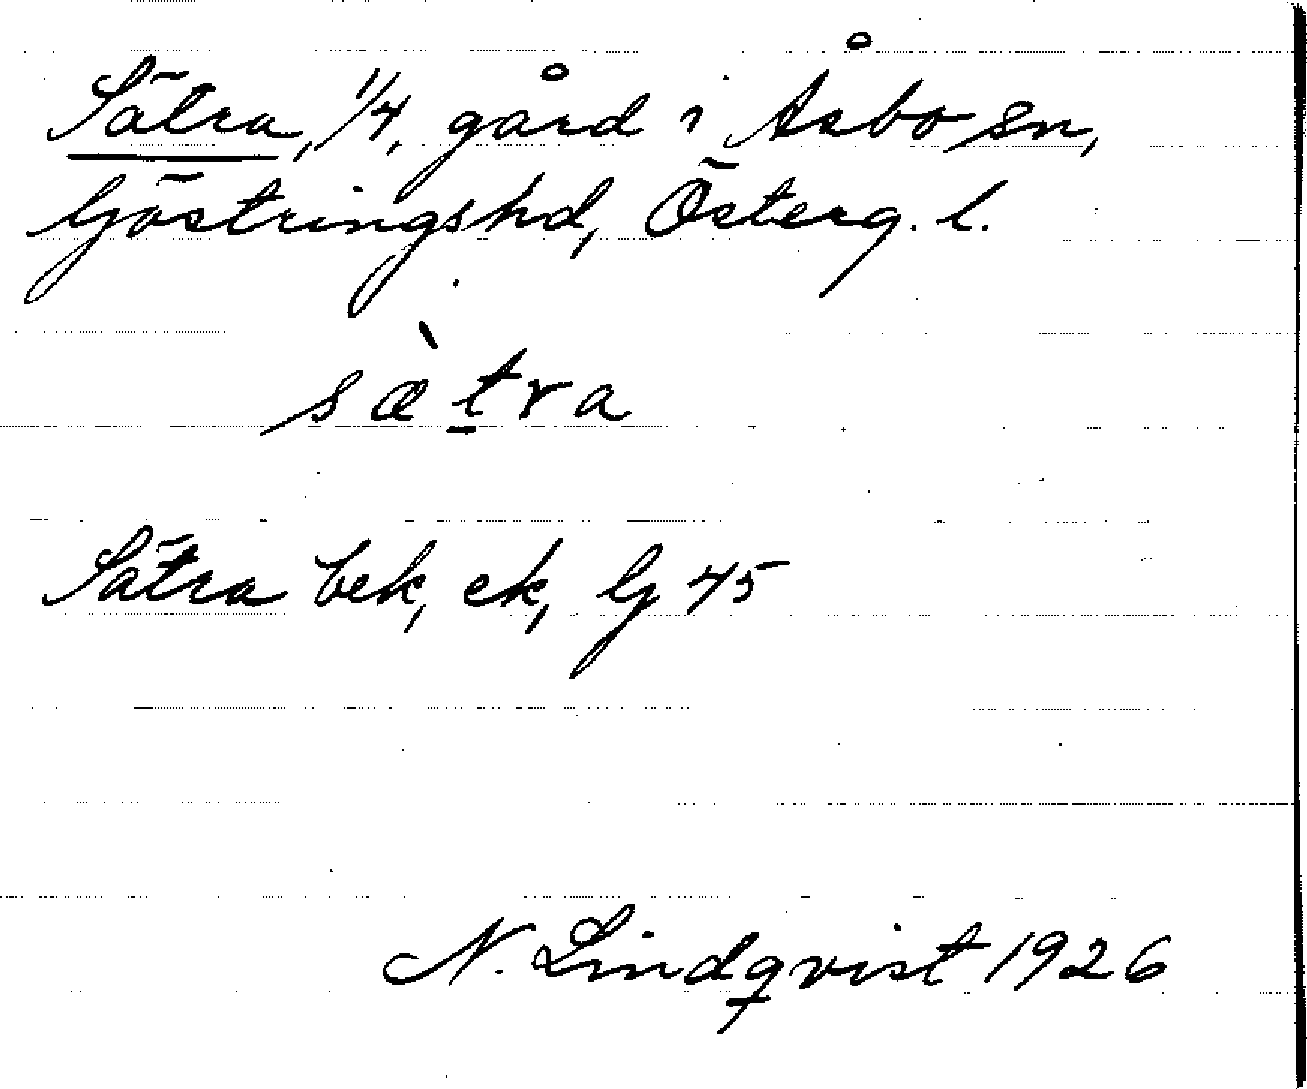 Sätra, 1/4, gård i Åsbo sn,
Göstringshd, Österg. l.
sæ̀t̲ra
Sätra bek, ek, Gj 45
N. Lindqvist 1926